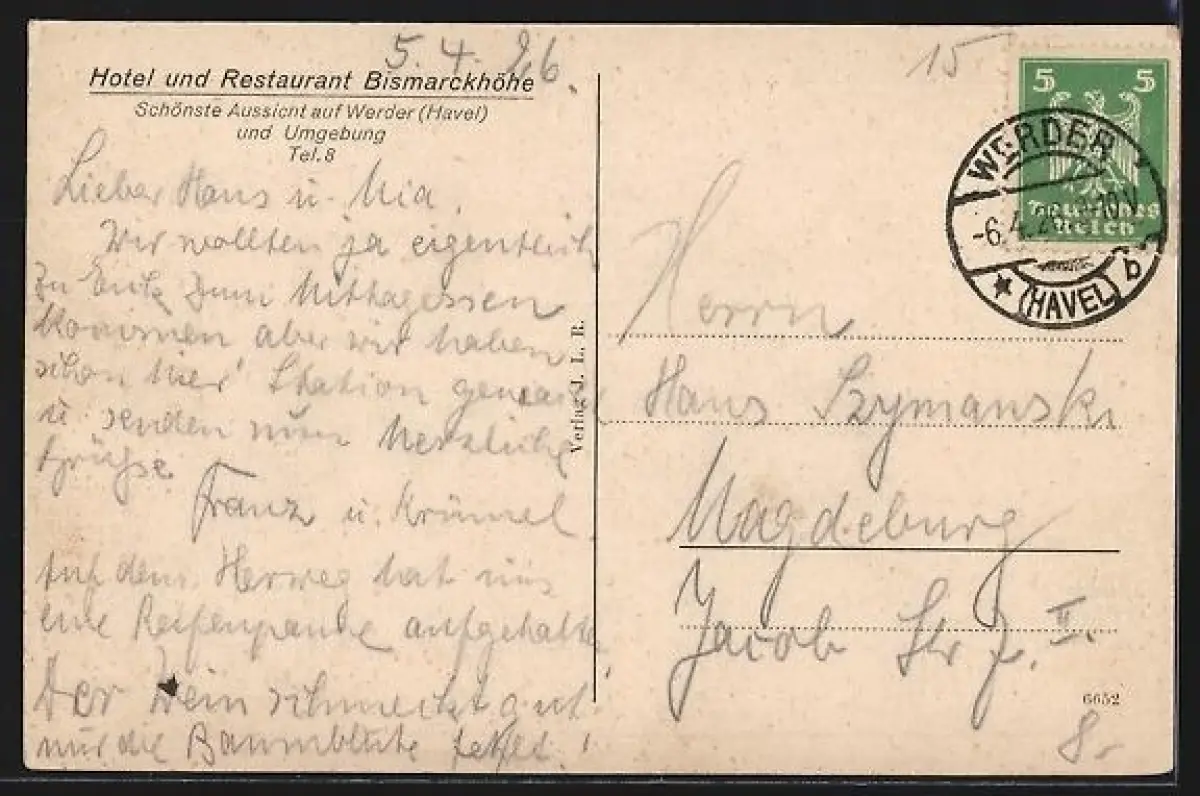 5.4.26.
Hotel und Restaurant Bismarckhöhe
Schönste Aussicht auf Werder (Havel)
und Umgebung
Tel. 8
Lieber Hans u. Mia.
Wir wollten ja eigentlich
zu Euch zum Mittagessen
kommen aber wir haben
schon hier Station gemacht
u. senden nun herzliche
Grüße.
Franz u. Krümel
Auf dem Herweg hat uns
eine Reifenpanne aufgehalten
Der Wein schmeckt gut
nur die Baumblüte fehlt!
Verlag J. L. R.
15
5 5
Deutsches
Reich
WERDER
-6.4.26. 10 V
* (HAVEL) b
Herrn
Hans Szymanski
Magdeburg
Jacob Str 7. II.
6652
8.-